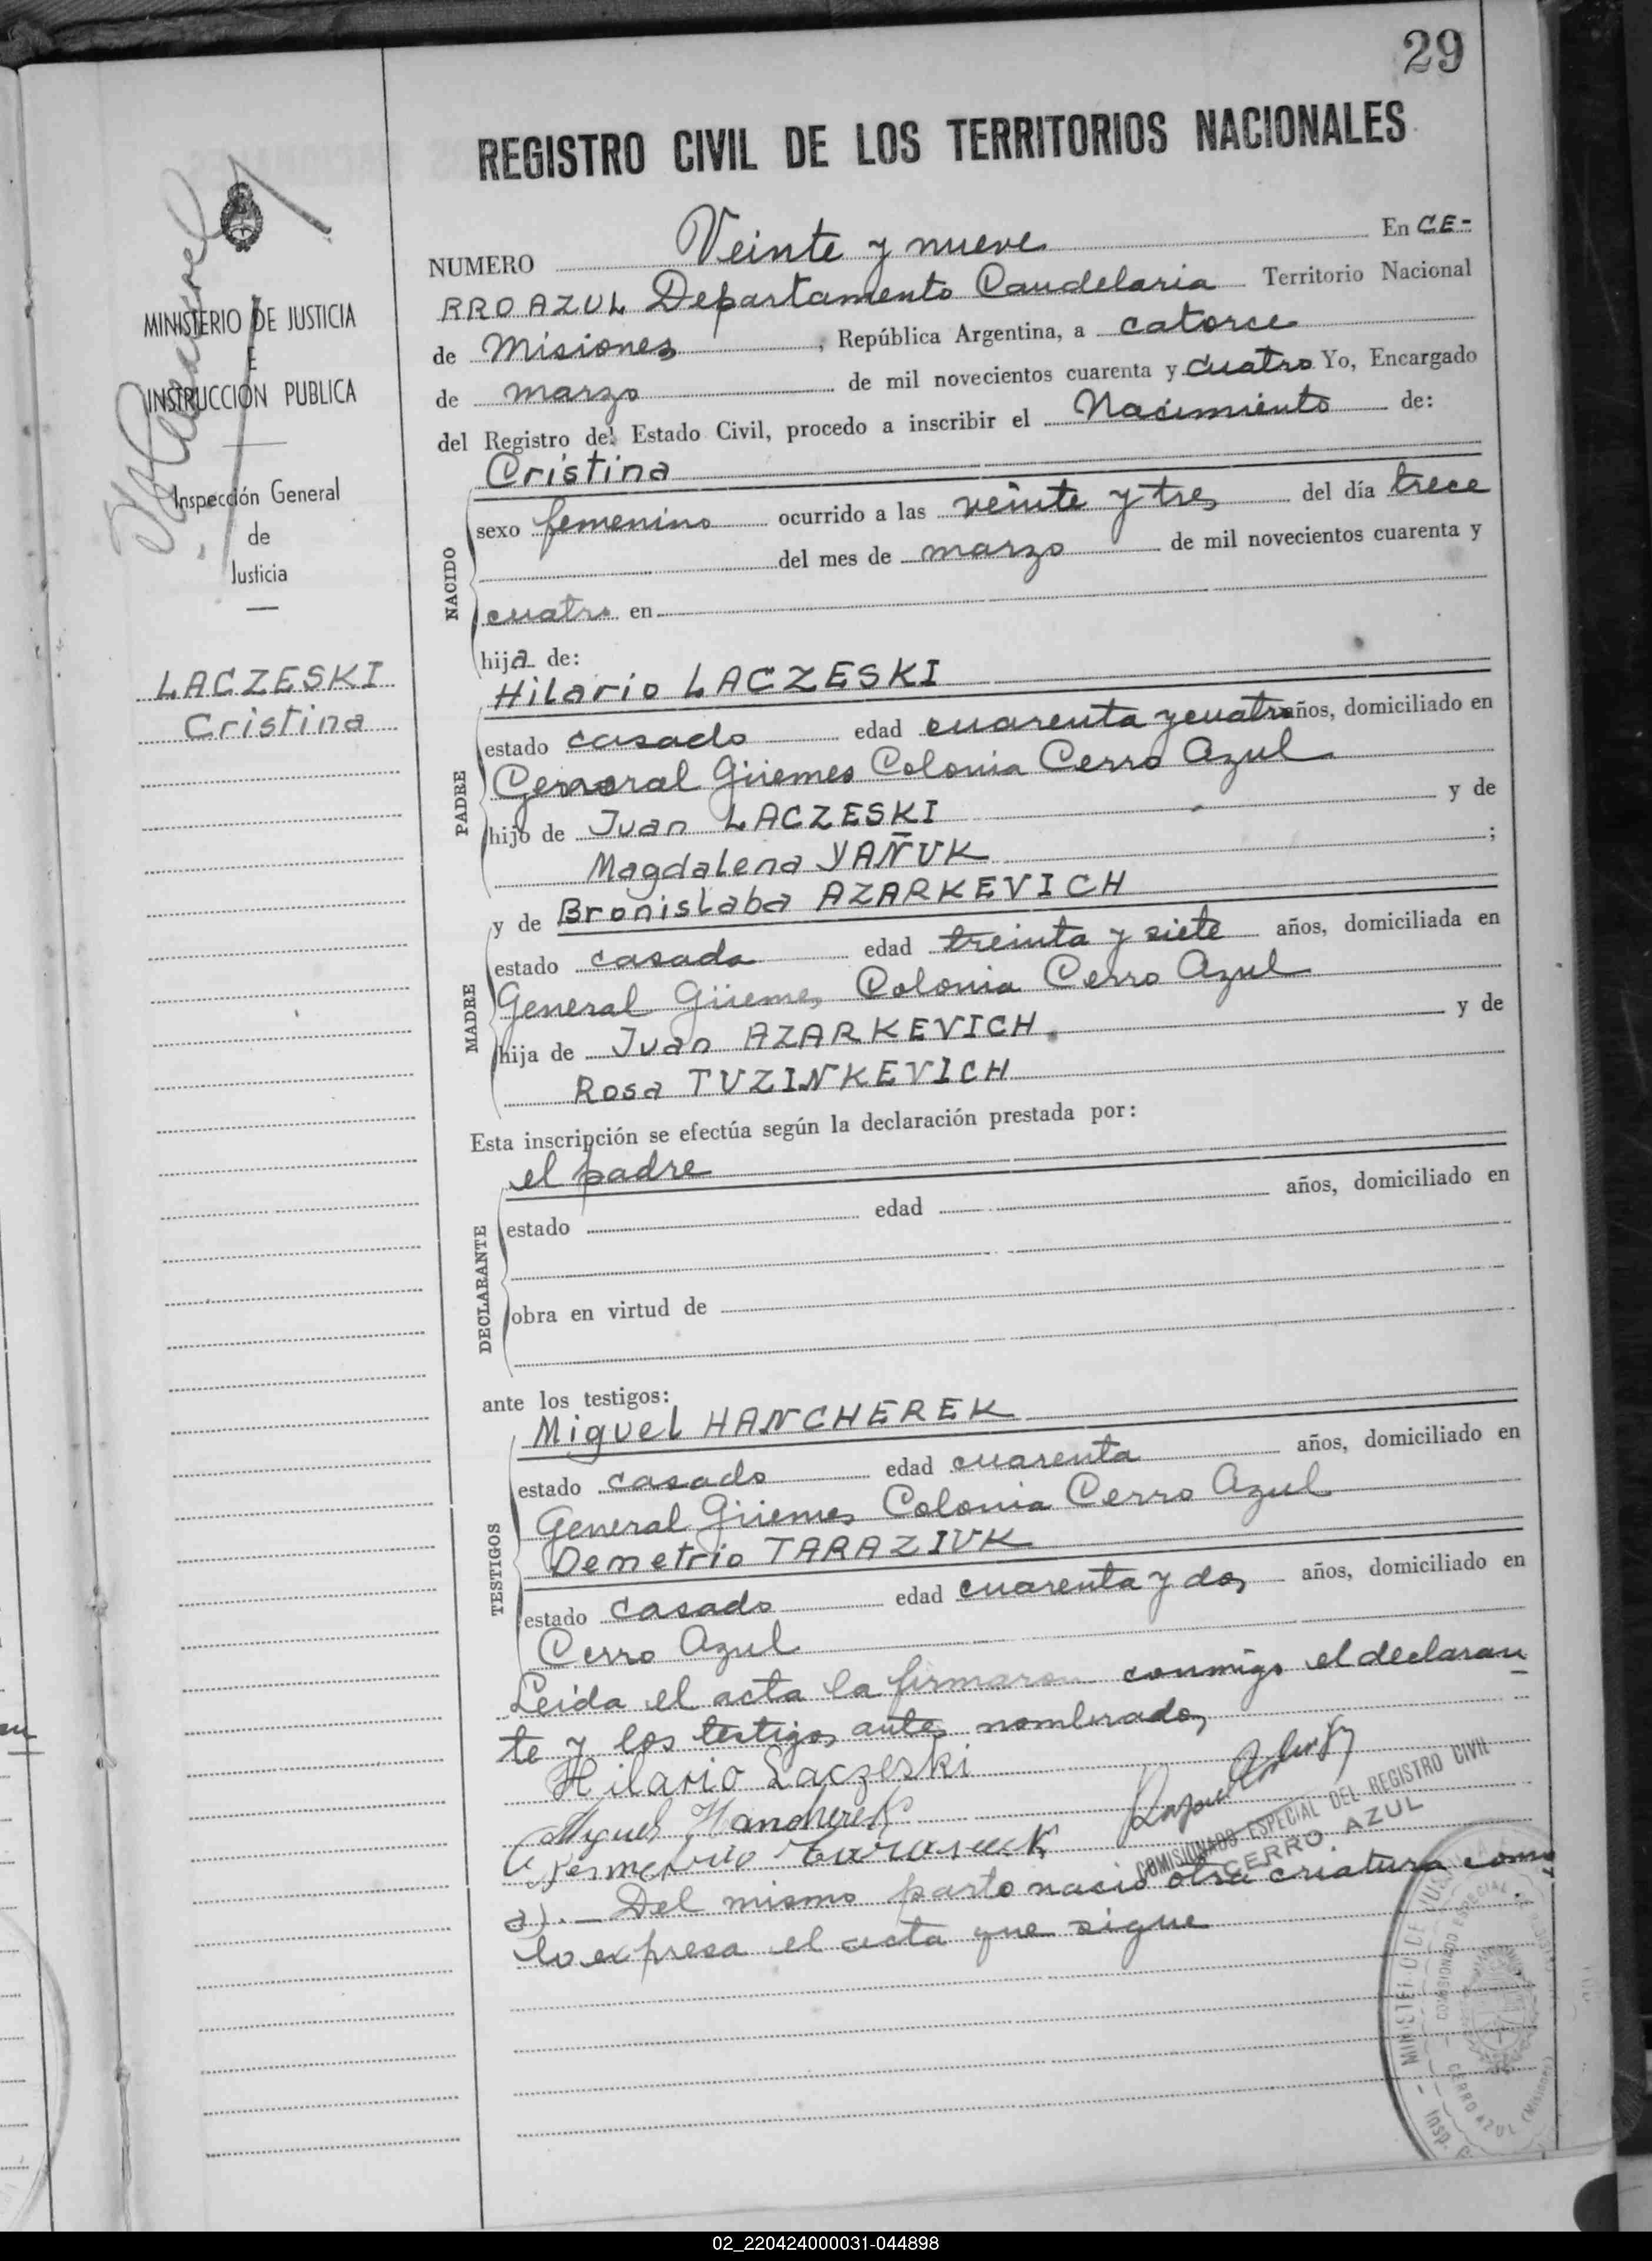 29
REGISTRO CIVIL DE LOS TERRITORIOS NACIONALES
MINISTERIO DE JUSTICIA
E
INSTRUCCIÓN PUBLICA
Inspección General
de
Justicia
LACZESKI
Cristina
NUMERO Veinte y nueve En CE-
RRO AZUL Departamento Candelaria Territorio Nacional
de Misiones, República Argentina, a catorce
de marzo de mil novecientos cuarenta y cuatro Yo, Encargado
del Registro del Estado Civil, procedo a inscribir el Nacimiento de:
NACIDO
Cristina
sexo femenino ocurrido a las veinte y tres del día trece
del mes de marzo de mil novecientos cuarenta y
cuatro en
hija de:
PADRE
Hilario LACZESKI
estado casado edad cuarenta y cuatro años, domiciliado en
General Güemes Colonia Cerro Azul
hijo de Juan LACZESKI y de
Magdalena YAÑUK ;
MADRE
y de Bronislaba AZARKEVICH
estado casada edad treinta y siete años, domiciliada en
General Güemes Colonia Cerro Azul
hija de Juan AZARKEVICH y de
Rosa TUZINKEVICH
Esta inscripción se efectúa según la declaración prestada por:
DECLARANTE
el padre
estado edad años, domiciliado en
obra en virtud de
ante los testigos:
TESTIGOS
Miguel HANCHEREK
estado casado edad cuarenta años, domiciliado en
General Güemes Colonia Cerro Azul
Demetrio TARAZIUK
estado casado edad cuarenta y dos años, domiciliado en
Cerro Azul
Leida el acta la firmaron conmigo el declaran
te y los testigos antes nombrados
Hilario Laczeski
Miguel Hancherek
COMISIONADO ESPECIAL DEL REGISTRO CIVIL
CERRO AZUL
a).- Del mismo parto nació otra criatura como
lo expresa el acta que sigue
MINISTERIO DE JUSTICIA
COMISIONADO ESPECIAL
CERRO AZUL (Misiones)
Insp.
02_220424000031-044898